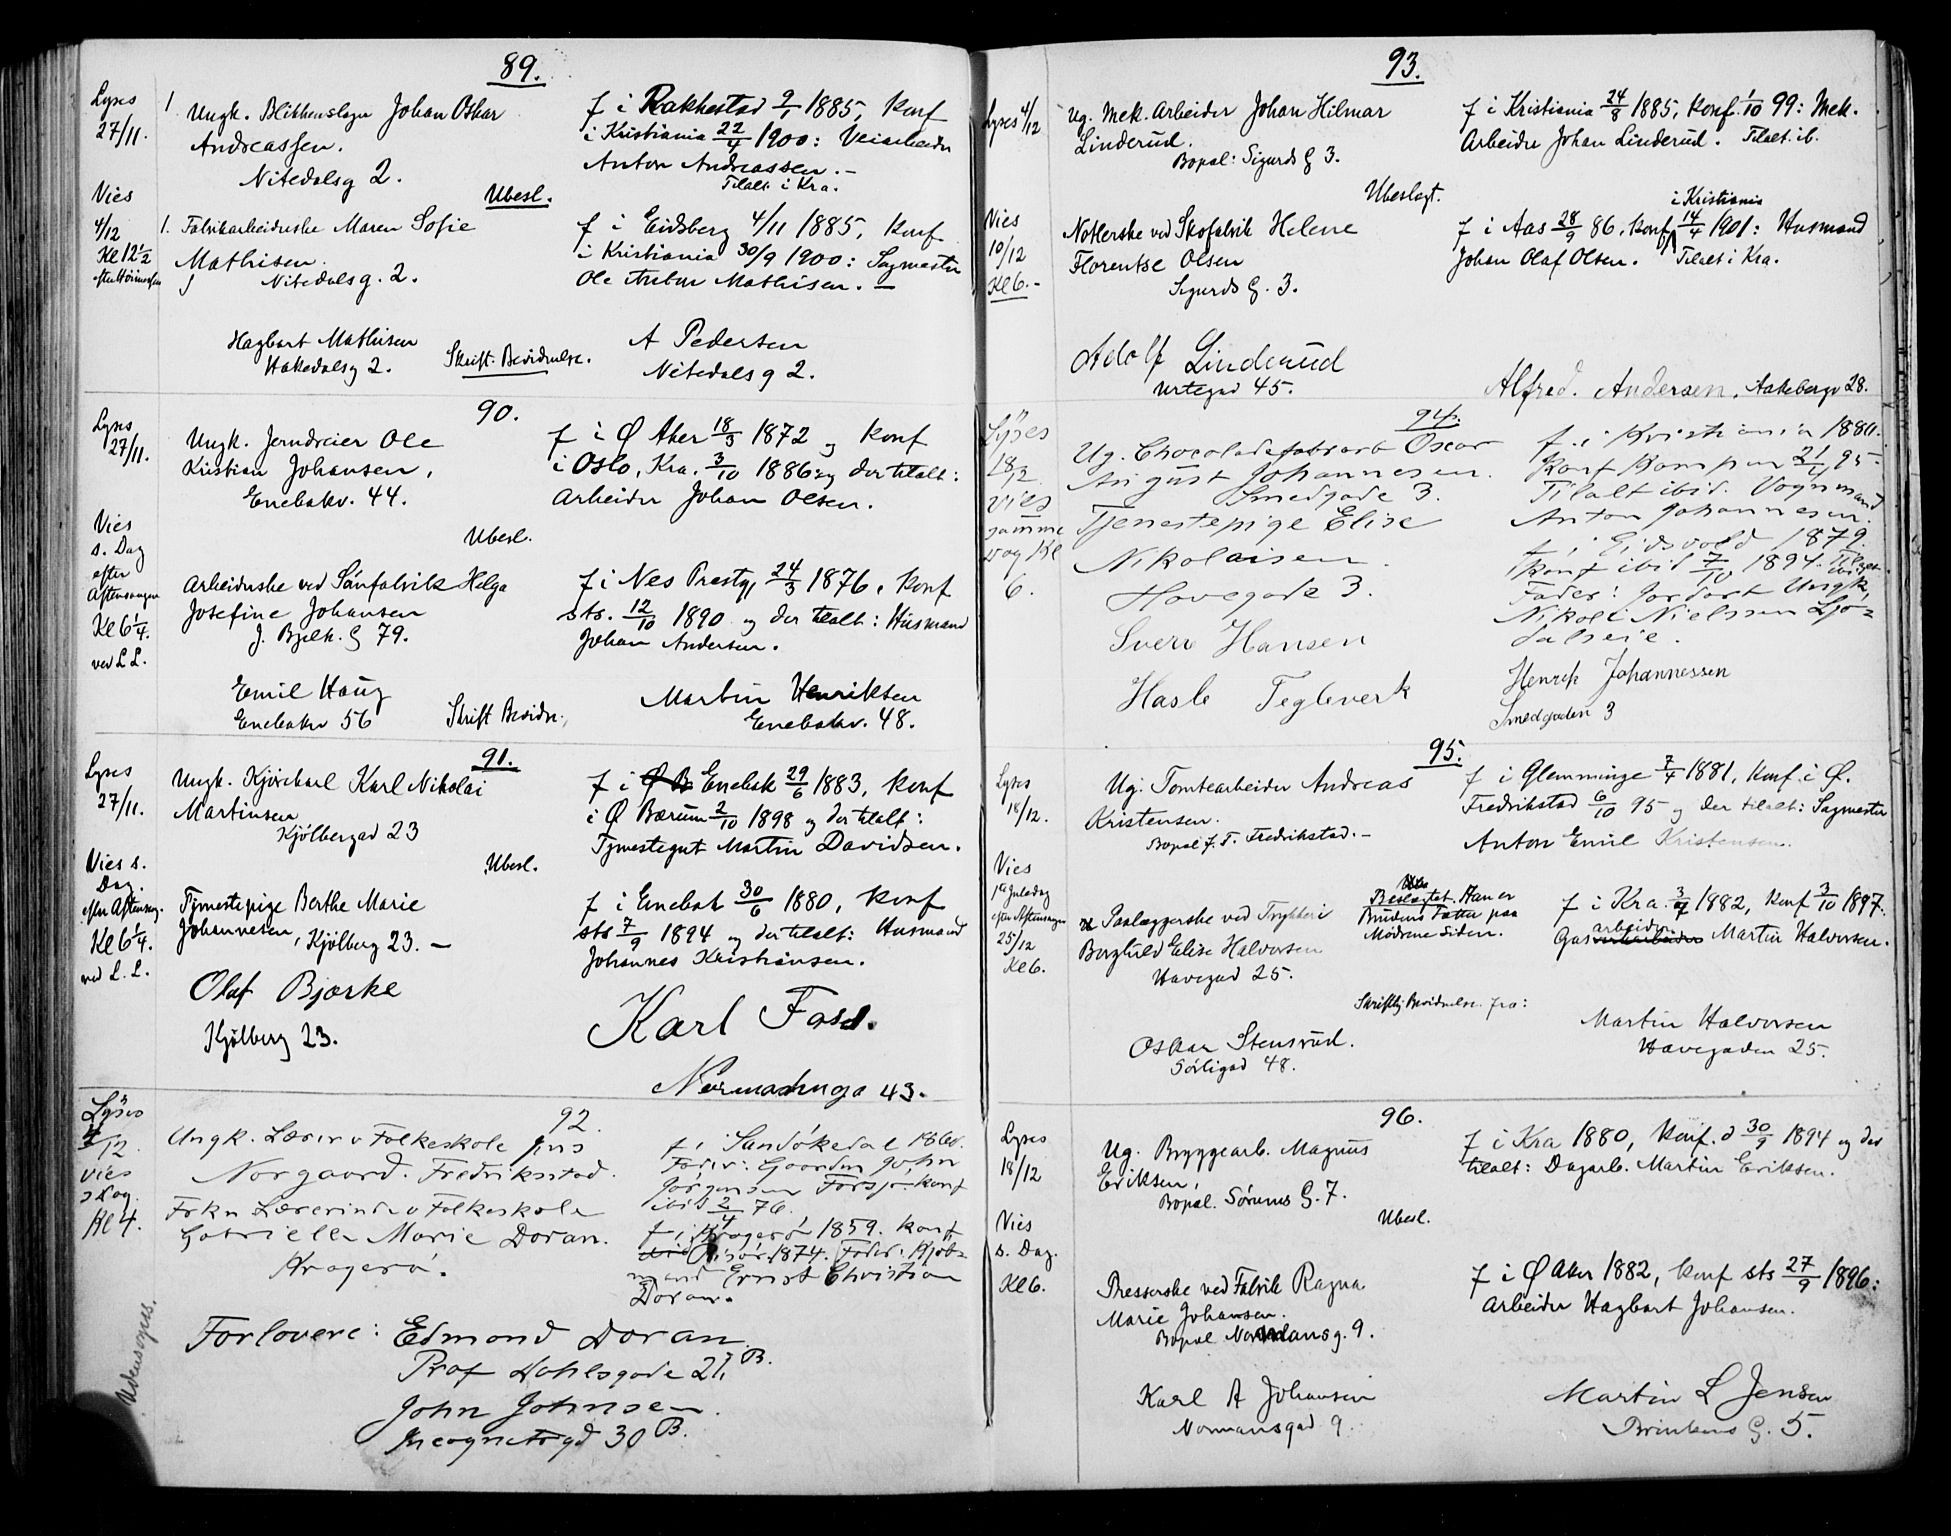 89.
Lyses
27/11.
1 Ungk. Blikkenslager Johan Oskar
Andreassen.
Nitedalsg 2.
f i Rakkestad 9/1 1885, konf
i Kristiania 22/4 1900: Veiarbeider
Anton Andreassen. -
Tilalt i Kra.
Ubesl.
Vies
4/12
Kl 12 1/2
efter Høimessen
1. Fabrikarbeiderske Maren Sofie
Mathisen.
Nitedalsg. 2.
f i Eidsberg 4/11 1885, konf
i Kristiania 30/9 1900: Sagmester
Ole Anton Mathisen. -
Hagbart Mathisen
Hakedalsg 2.
Skrift. Bevidnelse.
A Pedersen
Nitedalsg 2.
90.
Lyses
27/11.
Ungk. Jerndreier Ole
Kristian Johansen,
Enebakv. 44.
f i Ø Aker 18/3 1872 og konf
i Oslo, Kra. 3/10 1886 og der tilalt:
Arbeider Johan Olsen.
Ubesl.
Vies
s. Dag
efter
Aftensangen
Kl 6 1/4.
ved L L.
Arbeiderske ved Sæefabrik Helga
Josefine Johansen
J. Bjelk. G 79.
f i Nes Prestg, 24/3 1876, konf
sts. 12/10 1890 og der tilalt: Husmand
Johan Andersen.
Emil Haug
Enebakv 56
Skrift Bevidn.
Martin Henriksen
Enebakv. 48.
91.
Lyses
27/11.
Ungk. Kjørekarl Karl Nikolai
Martinsen
Kjølberggad 23
f i Ø B Enebak 29/6 1883, konf
i Ø Bærum 2/10 1898 og der tilalt:
Tjenestegut Martin Davidsen.
Ubesl.
Vies s.
Dag.
efter Aftensg.
Kl 6 1/4.
ved L. L.
Tjenestepige Berthe Marie
Johannesen, Kjølberg 23. -
f i Enebak 30/6 1880, konf
sts 7/9 1894 og der tilalt: Husmand
Johannes Kristiansen.
Olaf Bjørke
Kjølberg 23.
Karl Fosd.
Normansga 43.
92.
Lyses
4/12
Vies
s Dag.
Kl 4.
Ungk. Lærer v Folkeskole Jens
Norgaard. Fredriksstad.
f i Sandøkedal 1860.
Fader: Gaardm John
Jørgensen Forsjø. konf
ibid 2/4 76.
Frkn Lærerinde v Folkeskole
Gabrielle Marie Doran.
Kragerø.
f i Kragerø 1859. konf
ibid Risør 1874. Fader: Kjøb-
mand Ernst Christian
Doran.
Udensogns.
Forlovere: Edmond Doran
Prof Dahlsgade 21, B.
John Johnsen.
Incognitogd 30 B.
93.
Lyses 4/12
Ug. Mek. Arbeider Johan Hilmar
Linderud.
Bopæl: Sigurds G 3.
f i Kristiania 24/8 1885, konf. 1/10 99: Mek.
Arbeider Johan Linderud. Tilalt. ib.
Ubeslægt.
Vies
10/12
Kl 6. -
Notlerske ved Skofabrik Helene
Florentse Olsen
Sigurds G. 3.
i Kristiania
f i Aas 28/9 86, konf 14/4 1901: Husmand
Johan Olaf Olsen. Tilalt i Kra.
Adolf Linderud
Urtegad 45.
Alfred. Andersen, Aakebergv 28.
94.
Lyses
18/12
Vies
samme
Dag Kl
6.
Ug. Chocoladefabrarb Oscar
August Johannesen.
Smedgade 3.
f. i Kristiania 1880.
Konf Kampen 21/4 95
Tilalt ibid. Vognmand
Anton Johannesen.
Tjenestepige Elise
Nikolaisen.
Havegade 3.
f i Eidsvold 1879
konf ibid 7/10 1894. Tilalt ibid.
Fader: Jordarb Ungk,
Nikoli Nielssen Ljø-
dalseie.
Sverr Hansen
Hasle Teglverk
Henrik Johannessen
Smedgaden 3
95.
Lyses
18/12.
Ug. Tomtearbeider Andreas
Kristensen.
Bopæl f. T. Fredrikstad. -
f i Glemminge 7/4 1881, konf. i Ø.
Fredrikstad 6/10 95 og der tilalt: Sagmester
Anton Emil Kristensen.
Vies
1ste Juledag
efter Aftensangen
25/12
Kl 6.
Paalæggerske ved Trykkeri
Borghild Elise Halvorsen
Havegad 25.
Beslægtet. Han er
Brudens Fætter paa
Mødrene Siden.
f i Kra. 3/7 1882, konf 3/10 1897.
arbeider
Gasverkarbeider Martin Halvorsen.
Skriftlig Bevidnelse fra:
Oskar Stensrud.
Sørligad 48.
Martin Halvorsen
Havegaden 25.
96.
Lyses
18/12
Ug. Bryggearb. Magnus
Eriksen,
Bopæl. Sørums G. 7.
f i Kra 1880, konf. d 30/9 1894 og der
tilalt: Dagarb. Martin Eriksen.
Ubesl.
Vies
s. Dag.
Kl 6.
Presserske ved Fabrik Ragna
Marie Johansen.
Bopæl Normansg. 9.
f i Ø Aker 1882, konf sts 27/9 1896:
Arbeider Hagbart Johansen.
Karl A Johansen
Normansgad 9.
Martin L Jensen
Brinkens G. 5.